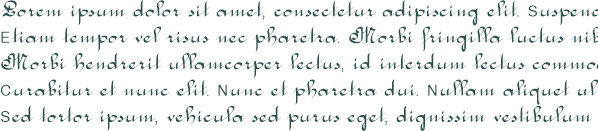 Lorem ipsum dolor sit amet, consectetur adipiscing elit. Suspend
Etiam tempor vel risus nec pharetra. Morbi fringilla luctus nib
Morbi hendrerit ullamcorper lectus, id interdum lectus commo
Curabitur et nunc elit. Nunc et pharetra dui. Nullam aliquet ul
Sed tortor ipsum, vehicula sed purus eget, dignissim vestibulum